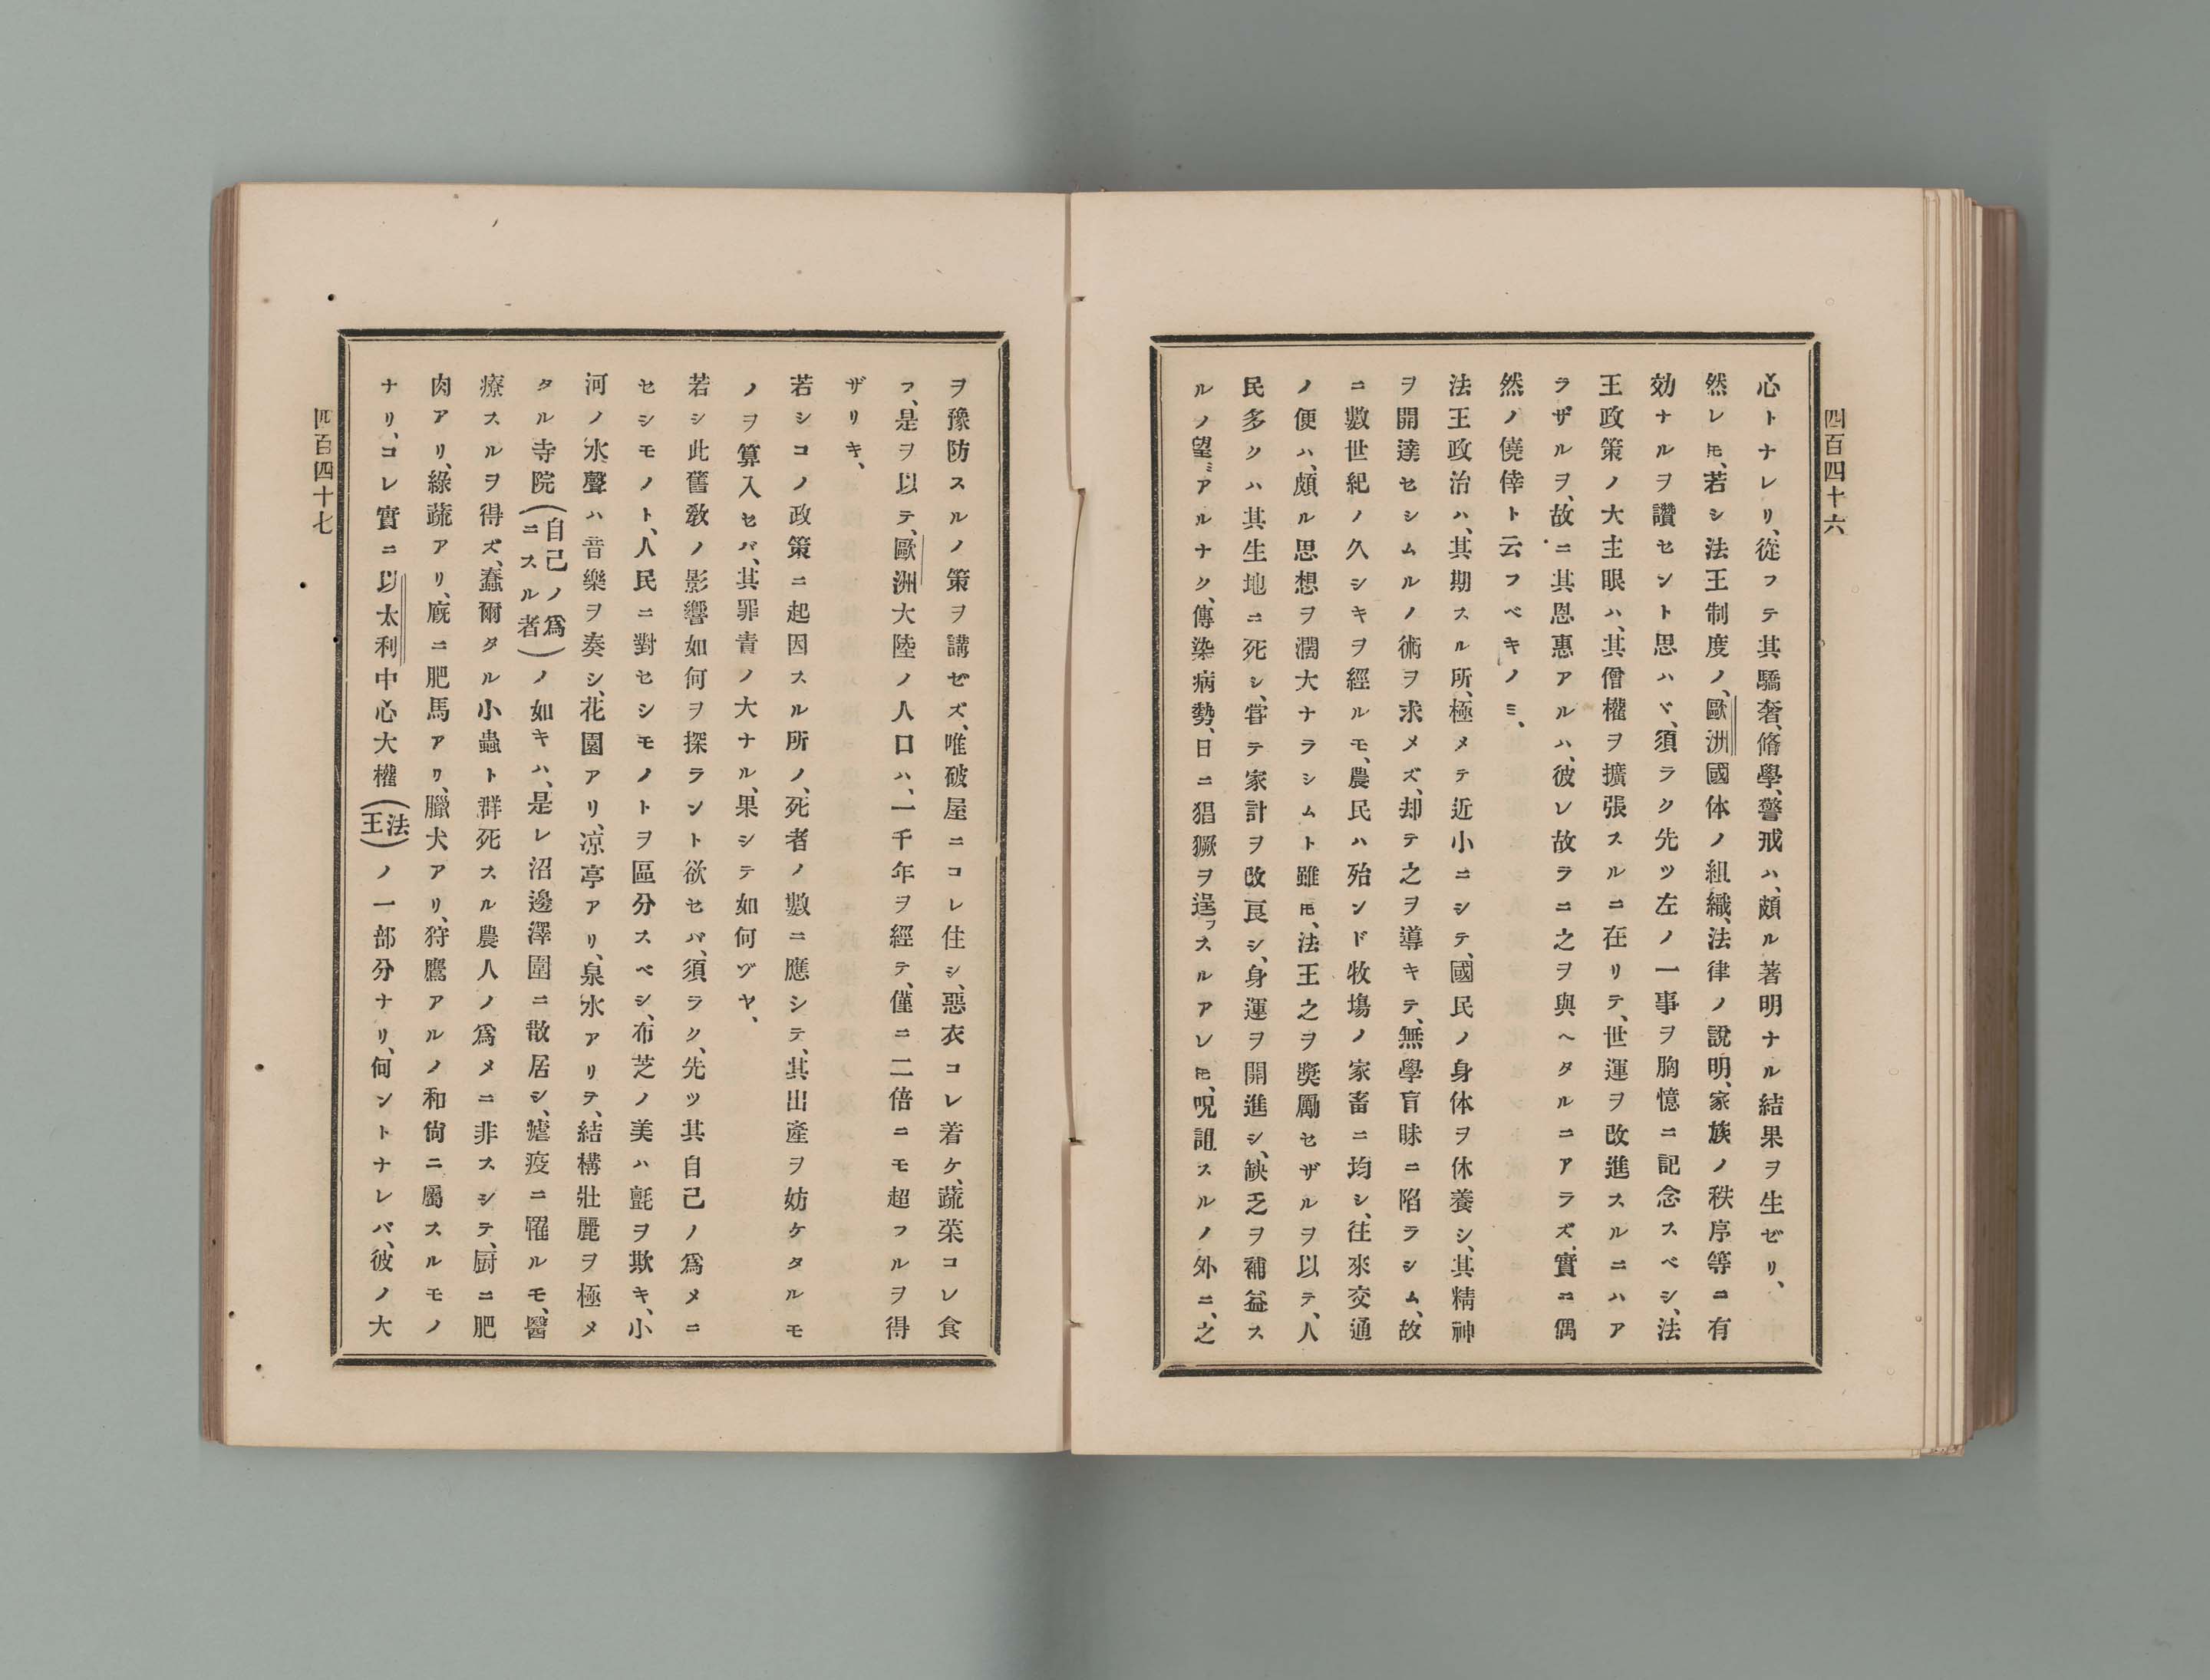 四百四十六
心トナレリ、從フテ其驕奢、脩學、警戒ハ、頗ル著明ナル結果ヲ生ゼリ、
然レ𪜈、若シ法王制度ノ、歐洲國体ノ組織、法律ノ說明、家族ノ秩序等ニ有
効ナルヲ讚セント思ハヾ、須ラク先ツ左ノ一事ヲ胸憶ニ記念スベシ、法
王政策ノ大主眼ハ、其僧權ヲ擴張スルニ在リテ、世運ヲ改進スルニハア
ラザルヲ、故ニ其恩惠アルハ、彼レ故ラニ之ヲ與ヘタルニアラズ、實ニ偶
然ノ僥倖ト云フベキノミ、
法王政治ハ、其期スル所、極メテ近小ニシテ、國民ノ身体ヲ休養シ、其精神
ヲ開達セシムルノ術ヲ求メズ、却テ之ヲ導キテ、無學盲昧ニ陷ラシム、故
ニ數世紀ノ久シキヲ經ルモ、農民ハ殆ンド牧塲ノ家畜ニ均シ、往來交通
ノ便ハ、頗ル思想ヲ濶大ナラシムト雖𪜈、法王之ヲ奬勵セザルヲ以テ、人
民多クハ其生地ニ死シ、甞テ家計ヲ改良シ、身運ヲ開進シ、缺乏ヲ補益ス
ルノ望ミアルナク、傳染病勢、日ニ猖獗ヲ逞フスルアレ𪜈、呪詛スルノ外ニ、之
ヲ豫防スルノ策ヲ講ゼズ、唯破屋ニコレ住シ、惡衣コレ着ケ、蔬菜コレ食
フ、是ヲ以テ、歐洲大陸ノ人口ハ、一千年ヲ經テ、僅ニ二倍ニモ超フルヲ得
ザリキ、
若シコノ政策ニ起因スル所ノ、死者ノ數ニ應シテ、其出產ヲ妨ケタルモ
ノヲ算入セバ、其罪責ノ大ナル、果シテ如何ヅヤ、
若シ此舊敎ノ影響如何ヲ探ラント欲セバ、須ラク、先ツ其自己ノ爲メニ
セシモノト、人民ニ對セシモノトヲ區分スベシ、布芝ノ美ハ氈ヲ欺キ、小
河ノ水聲ハ音樂ヲ奏シ、花園アリ、凉亭アリ、泉水アリテ、結構壯麗ヲ極メ
タル寺院(自己ノ爲ニスル者)ノ如キハ、是レ沼邊澤圍ニ散居シ、瘧疫ニ罹ルモ、醫
療スルヲ得ズ、蠢爾タル小蟲ト群死スル農人ノ爲メニ非スシテ、厨ニ肥
肉アリ、綠蔬アリ、廐ニ肥馬アリ、臘犬アリ、狩鷹アルノ和尙ニ屬スルモノ
ナリ、コレ實ニ以太利中心大權(法王)ノ一部分ナリ、何ントナレバ、彼ノ大
四百四十七